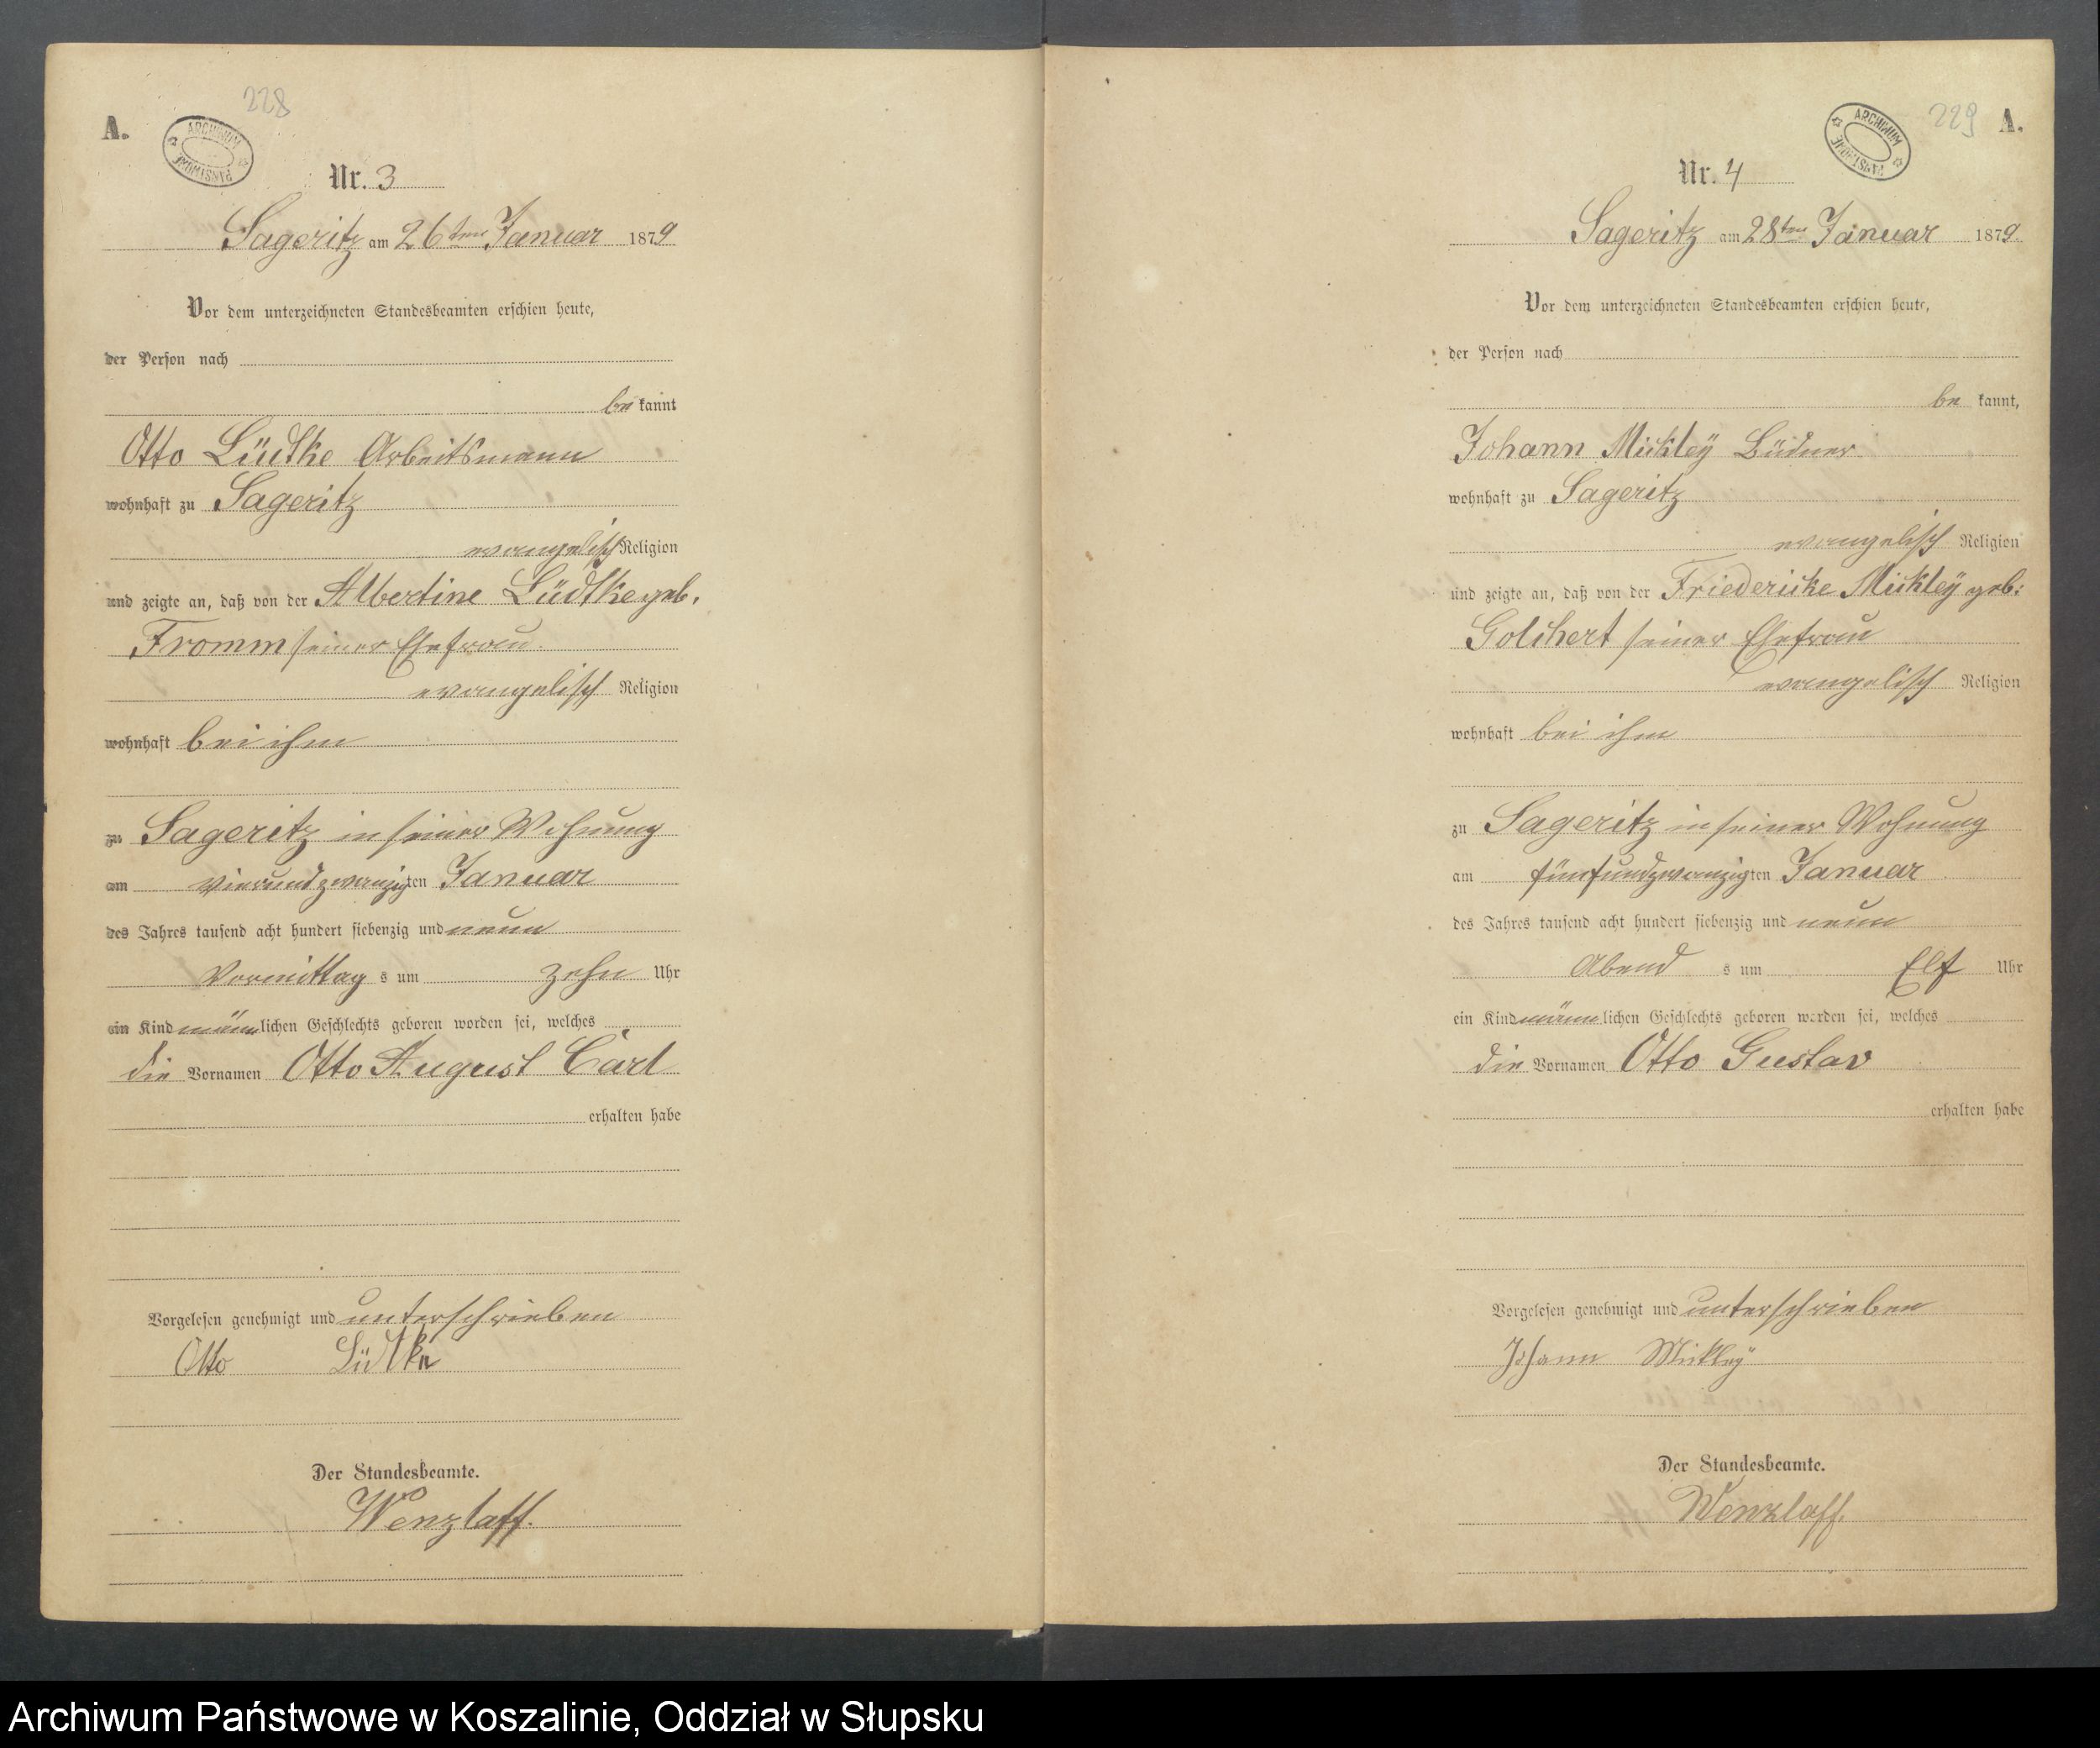 228
A.
ARCHIWUM PAŃSTWOWE
Nr. 3
Sageritz am 26ten Januar 1879
Vor dem unterzeichneten Standesbeamten erschien heute,
der Person nach
be kannt
Otto Lüdtke Arbeitsmann
wohnhaft zu Sageritz
evangelisch Religion
und zeigte an, daß von der Albertine Lüdtke geb.
Fromm seiner Ehefrau
evangelisch Religion
wohnhaft bei ihm
zu Sageritz in seiner Wohnung
am vierundzwanzigten Januar
des Jahres tausend acht hundert siebenzig und neun
Vormittag s um zehn Uhr
ein Kind männlichen Geschlechts geboren worden sei, welches
die Vornamen Otto August Carl
erhalten habe
Vorgelesen genehmigt und unterschrieben
Otto Lüdtke
Der Standesbeamte.
Wenzlaff.
229
A.
ARCHIWUM PAŃSTWOWE
Nr. 4
Sageritz am 28ten Januar 1879.
Vor dem unterzeichneten Standesbeamten erschien heute,
der Person nach
be kannt,
Johann Mickley Büdner
wohnhaft zu Sageritz
evangelisch Religion
und zeigte an, daß von der Friedericke Mickley geb:
Golchert seiner Ehefrau
evangelisch Religion
wohnhaft bei ihm
zu Sageritz in seiner Wohnung
am fünfundzwanzigten Januar
des Jahres tausend acht hundert siebenzig und neun
Abend s um Elf Uhr
ein Kind männlichen Geschlechts geboren worden sei, welches
die Vornamen Otto Gustav
erhalten habe
Vorgelesen genehmigt und unterschrieben
Johann Mickley
Der Standesbeamte.
Wenzlaff.
Archiwum Państwowe w Koszalinie, Oddział w Słupsku